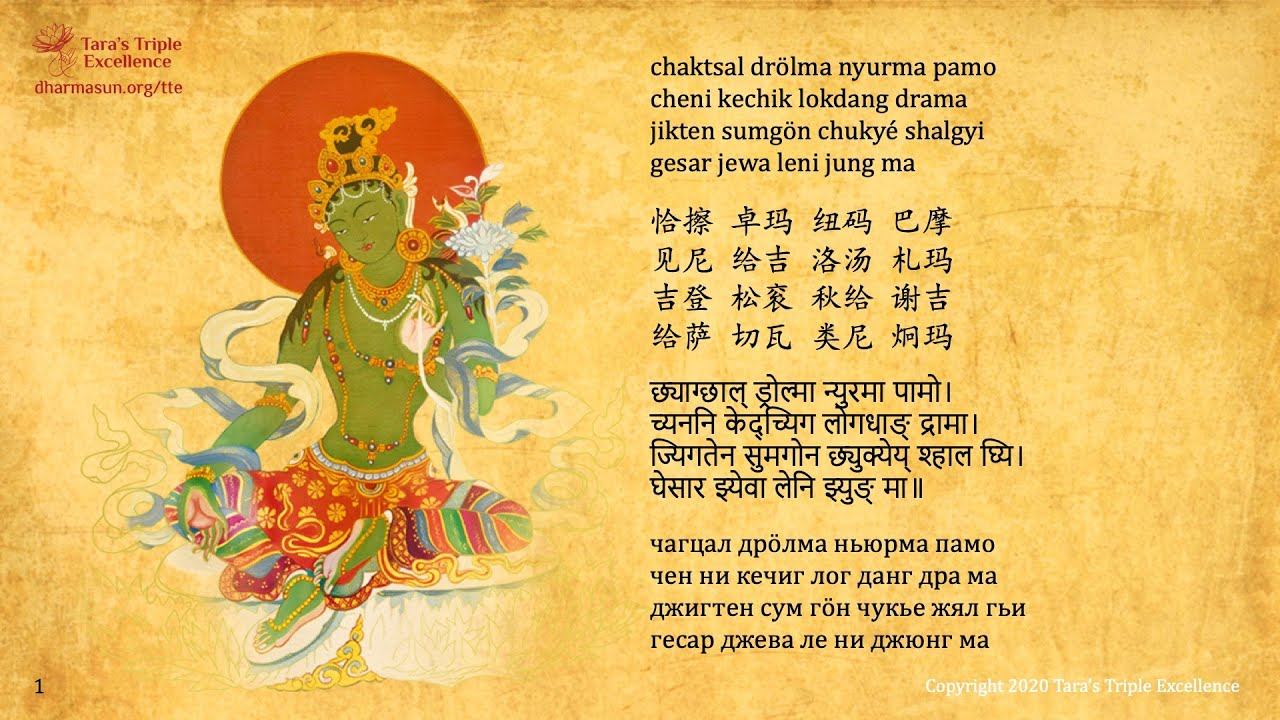 Tara's Triple
Excellence
dharmasun.org/tte
chaktsal drölma nyurma pamo
cheni kechik lokdang drama
jikten sumgön chukyé shalgyi
gesar jewa leni jung ma
恰擦 卓玛 纽码 巴摩
见尼 给吉 洛汤 札玛
吉登 松衮 秋给 谢吉
给萨 切瓦 类尼 炯玛
छ्याग्छाल् ड्रोल्मा न्युरमा पामो।
च्यननि केद्च्यिग लोगधाङ् द्रामा।
ज्यिगतेन सुमगोन छ्युक्येय् श्हाल घ्यि।
घेसार झ्येवा लेनि झ्युङ् मा॥
чагцал дрӧлма ньюрма памо
чен ни кечиг лог данг дра ма
джигтен сум гӧн чукье жял гьи
гесар джева ле ни джюнг ма
1
Copyright 2020 Tara's Triple Excellence